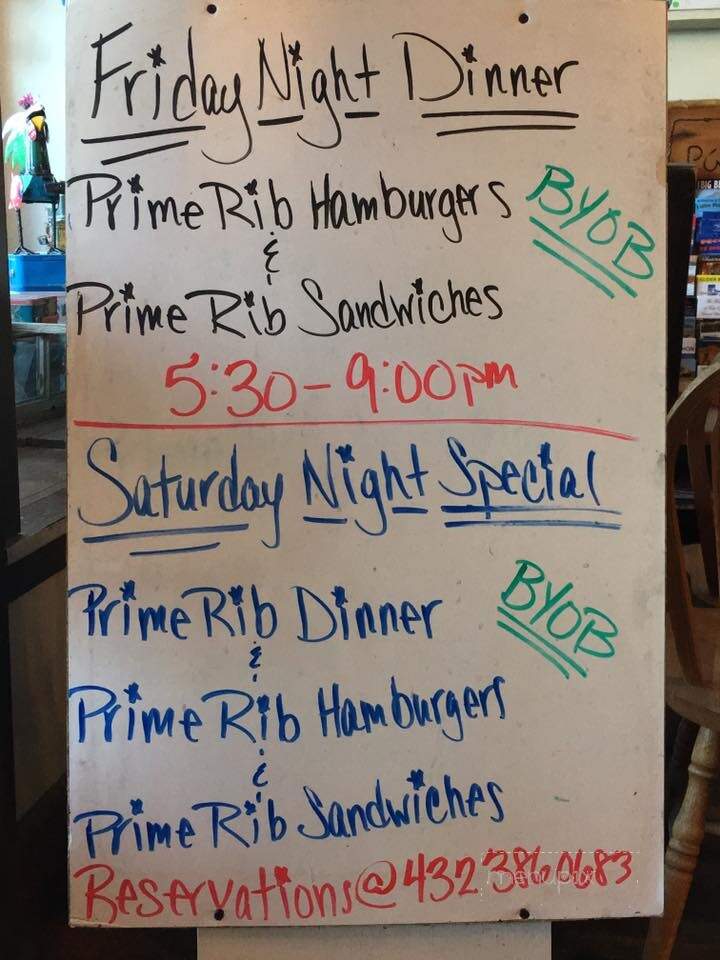 Friday Night Dinner
Prime Rib Hamburgers BYOB
&
Prime Rib Sandwiches
5:30 - 9:00pm
Saturday Night Special
Prime Rib Dinner BYOB
&
Prime Rib Hamburgers
&
Prime Rib Sandwiches
Reservations @ 432 386 0683
menupix